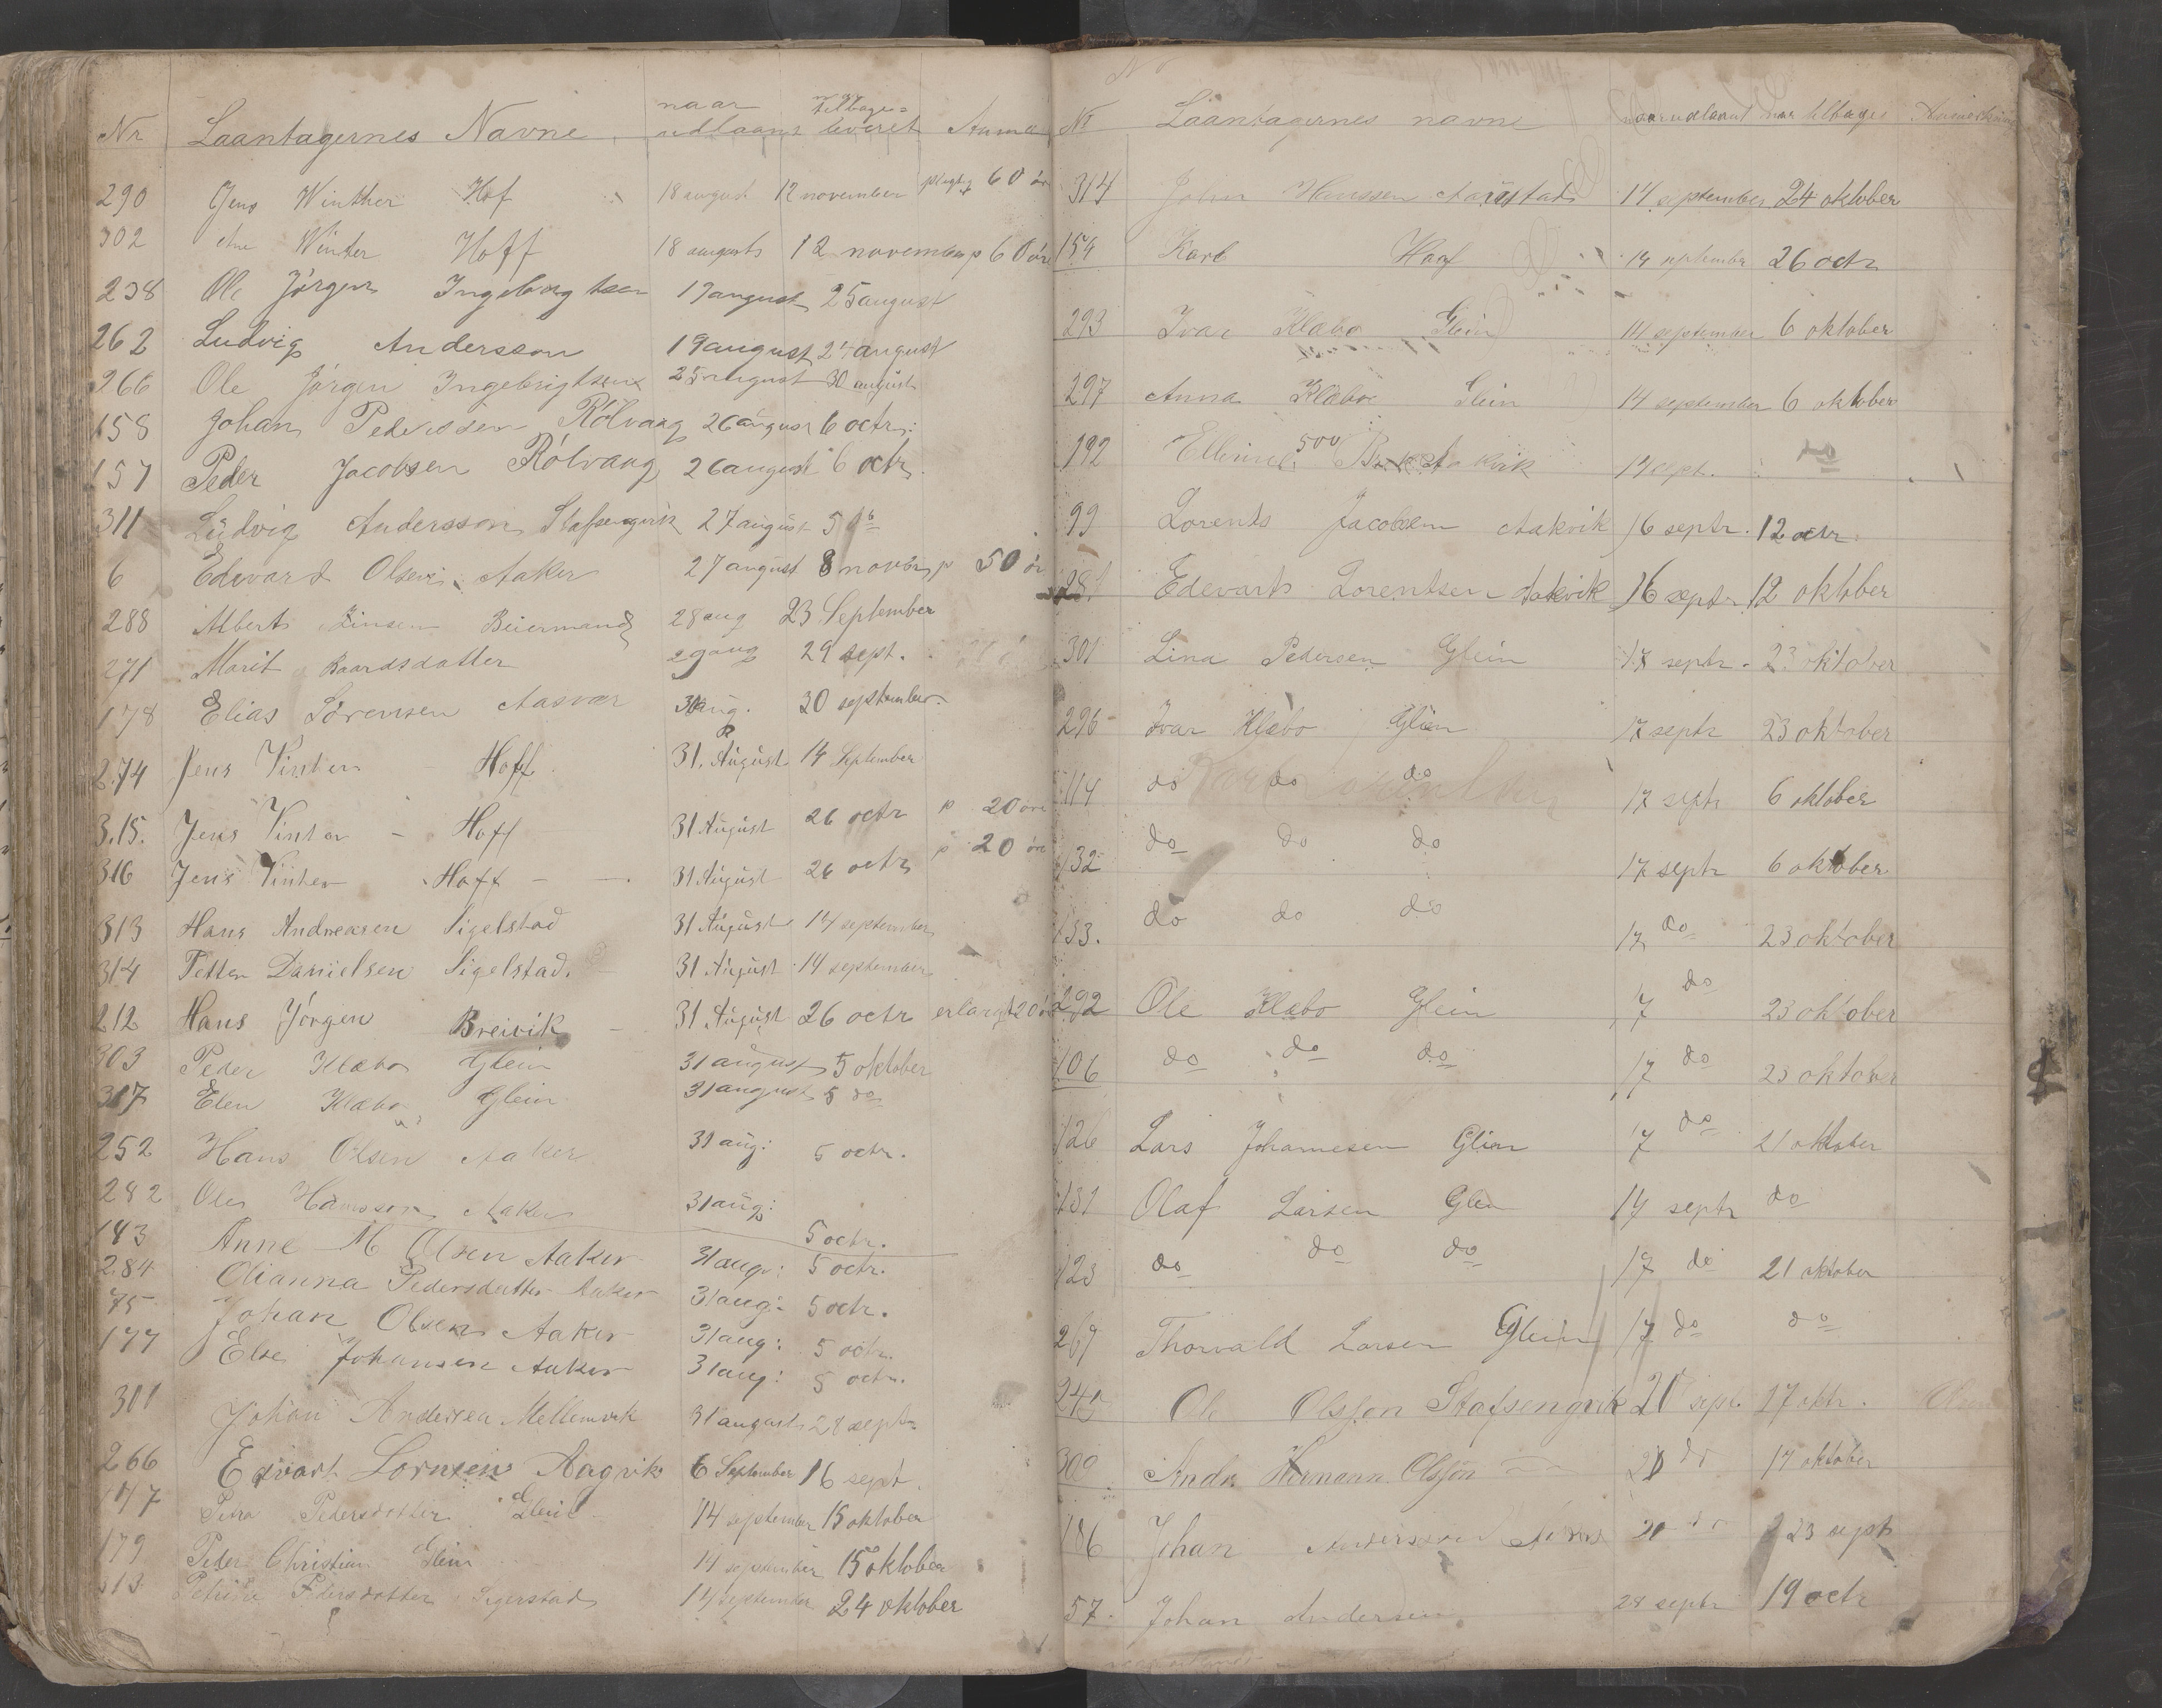 Nr Laantagernes Navne naar udlaant tilbage= leveret Anma
290 Jens Winther Hof 18 august 12 november 60 öre
302 Winter Hoff 18 augusts 12 november p 60 öre
238 Ole Jörgen Ingebrigtsen 19 august 25 august
262 Ludvig Andersson 19 august 27 august
266 Ole Jörgen Ingebrigtsen 25 august 30 august
158 Johan Pederssen Rölvaag 26 august 6 octr:
157 Peder Jacobsen Rölvaag 26 august 6 octr.
311 Ludvig Andersson Stafsengvik 27 august
6 Edvard Olsen Aaker 27 august 8 novbr p 50 ör
288 Albert Beiermand 28 aug 23 September
271 Marit Baardsdatter 29 aug 29 sept.
178 Elias Sörensen Aasvær aug. 30 september.
274 Jens Vinter - Hoff 31. August 14 September
315. Jens Vinter - Hoff 31 August 26 octr p 20 öre
316 Jens Vinter Hoff - - 31 August 26 octr p 20 öre
313 Hans Andreasen Sigelstad 31 August 14 september
314 Petter Danielsen Sigelstad. 31 August 14 september
212 Hans Jörgen Breivik - 31 August 26 octr erlangt 20 ö
303 Peder Klæbo Glein 31 august 5 oktober
317 Elen Klæbo Glein 31 august 5 do
252 Hans Olsen Aaker 31 aug: 5 octr.
282 Ole Hanssen Aaker 31 aug: 5 octr.
143 Anne M Olsen Aaker 31 aug: 5 octr.
284 Olianna Pedersdatter Aaker 31 aug: 5 octr.
75 Johan Olsen Aaker 31 aug: 5 octr.
177 Else Johansen Aaker 31 aug: 5 octr.
311 Johan Andersen Mellemvik 31 august 28 septr
266 Edvart Lornsen Aagvik 6 September 16 sept.
Petra Pedersdatter Glein 14 september 15 oktober
179 Peder Christian Glein 14 september 15 oktober
313 Petrine Pedersdatter Sigerstad 14 september 24 oktober
Nr Laantagernes navne naar udlaant naar tilbage Anmærkning
314 Johan Hanssen 14 september 24 oktober
154 Karl Haaf 14 september 26 octr
293 Ivar Klæbo Glein 14 september 6 oktober
297 Anna Klæboe Glein 14 september 6 oktober
192 500 14 sept. do
99 Lorents Jacobsen Aakvik 16 septr. 12 octr.
281 Edevarts Lorentsen Aakvik 16 septr 12 oktober
301 Lina Pedersen Glein 18 septr. 23 oktober
296 Ivar Klæbo Glein 17 septr 23 oktober
114 do do do 17 septr 6 oktober
132 do do do 17 septr 6 oktober
133. do do do 17 do 23 oktober
292 Ole Klæbo Glein 17 do 23 oktober
106 do do do 17 do 23 oktober
126 Lars Johannesen Glein 17 do 21 oktober
131 Olaf Larsen Glein 17 septr do
123 do do do 17 do 21 oktober
267 Thorvald Larsen Glein 17 do do
Ole Olsson Stafsengvik 21 sept 17 oktr.
300 Andr. Hermann Olsson 21 do 17 oktober
186 Johan Andersson 21 do 23 sept
57. Johan Andersen 28 septr 19 octr